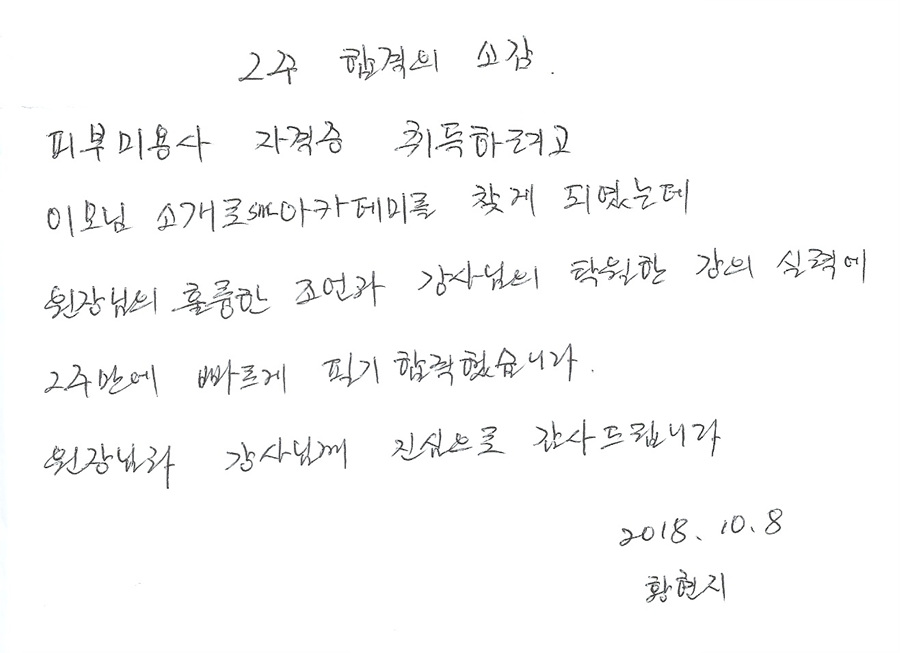 2주 합격의 소감.
피부미용사 자격증 취득하려고
이모님 소개로 sm아카데미를 찾게 되였는데
원장님의 훌륭한 조언과 강사님의 탁월한 강의 실력에
2주만에 빠르게 필기 합격했습니다.
원장님과 강사님께 진심으로 감사드립니다
2018. 10. 8
황현지